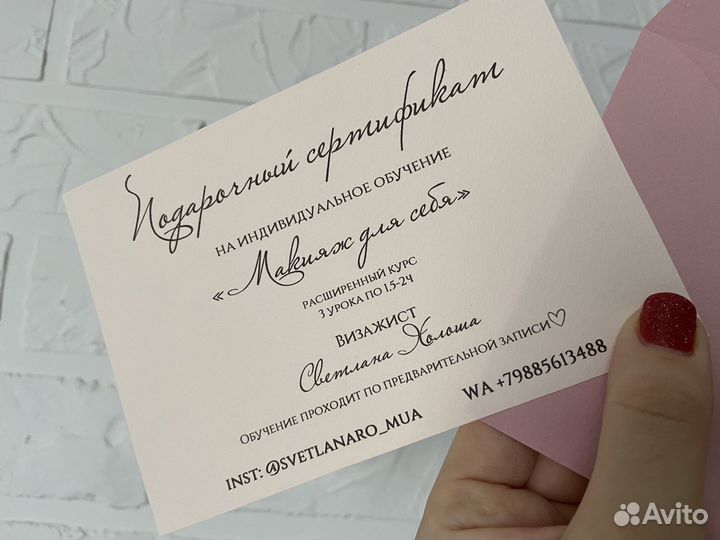 Подарочный сертификат
НА ИНДИВИДУАЛЬНОЕ ОБУЧЕНИЕ
«Макияж для себя»
РАСШИРЕННЫЙ КУРС
3 УРОКА ПО 1.5-2Ч
ВИЗАЖИСТ
Светлана Холоша
ОБУЧЕНИЕ ПРОХОДИТ ПО ПРЕДВАРИТЕЛЬНОЙ ЗАПИСИ♡
INST: @SVETLANARO_MUA WA +79885613488
Avito